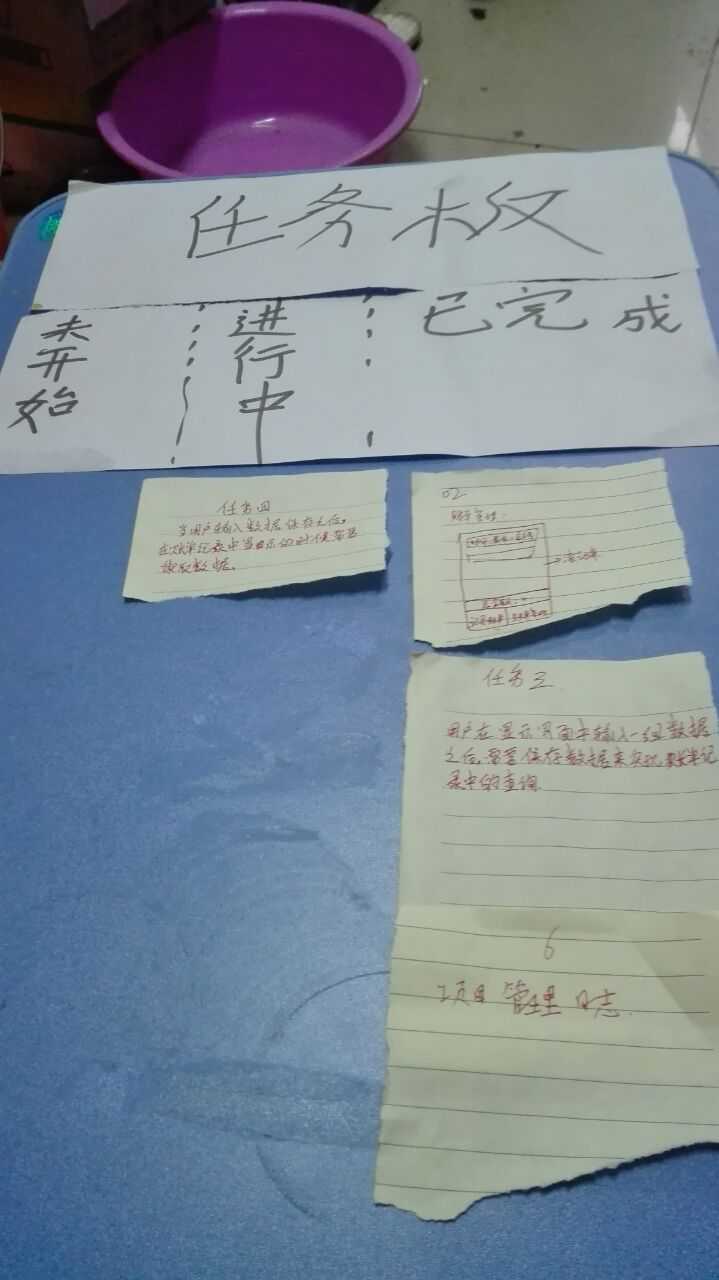 任务板
未开始
进行中
已完成
任务四
当用户在输入数据保存之后,
在账单记录中当显示的时候需要
读取数据。
02
任务三
用户在显示界面中输入一组数据
之后,需要保存数据来实现账单记
录中的查询
6
项目管理日志.